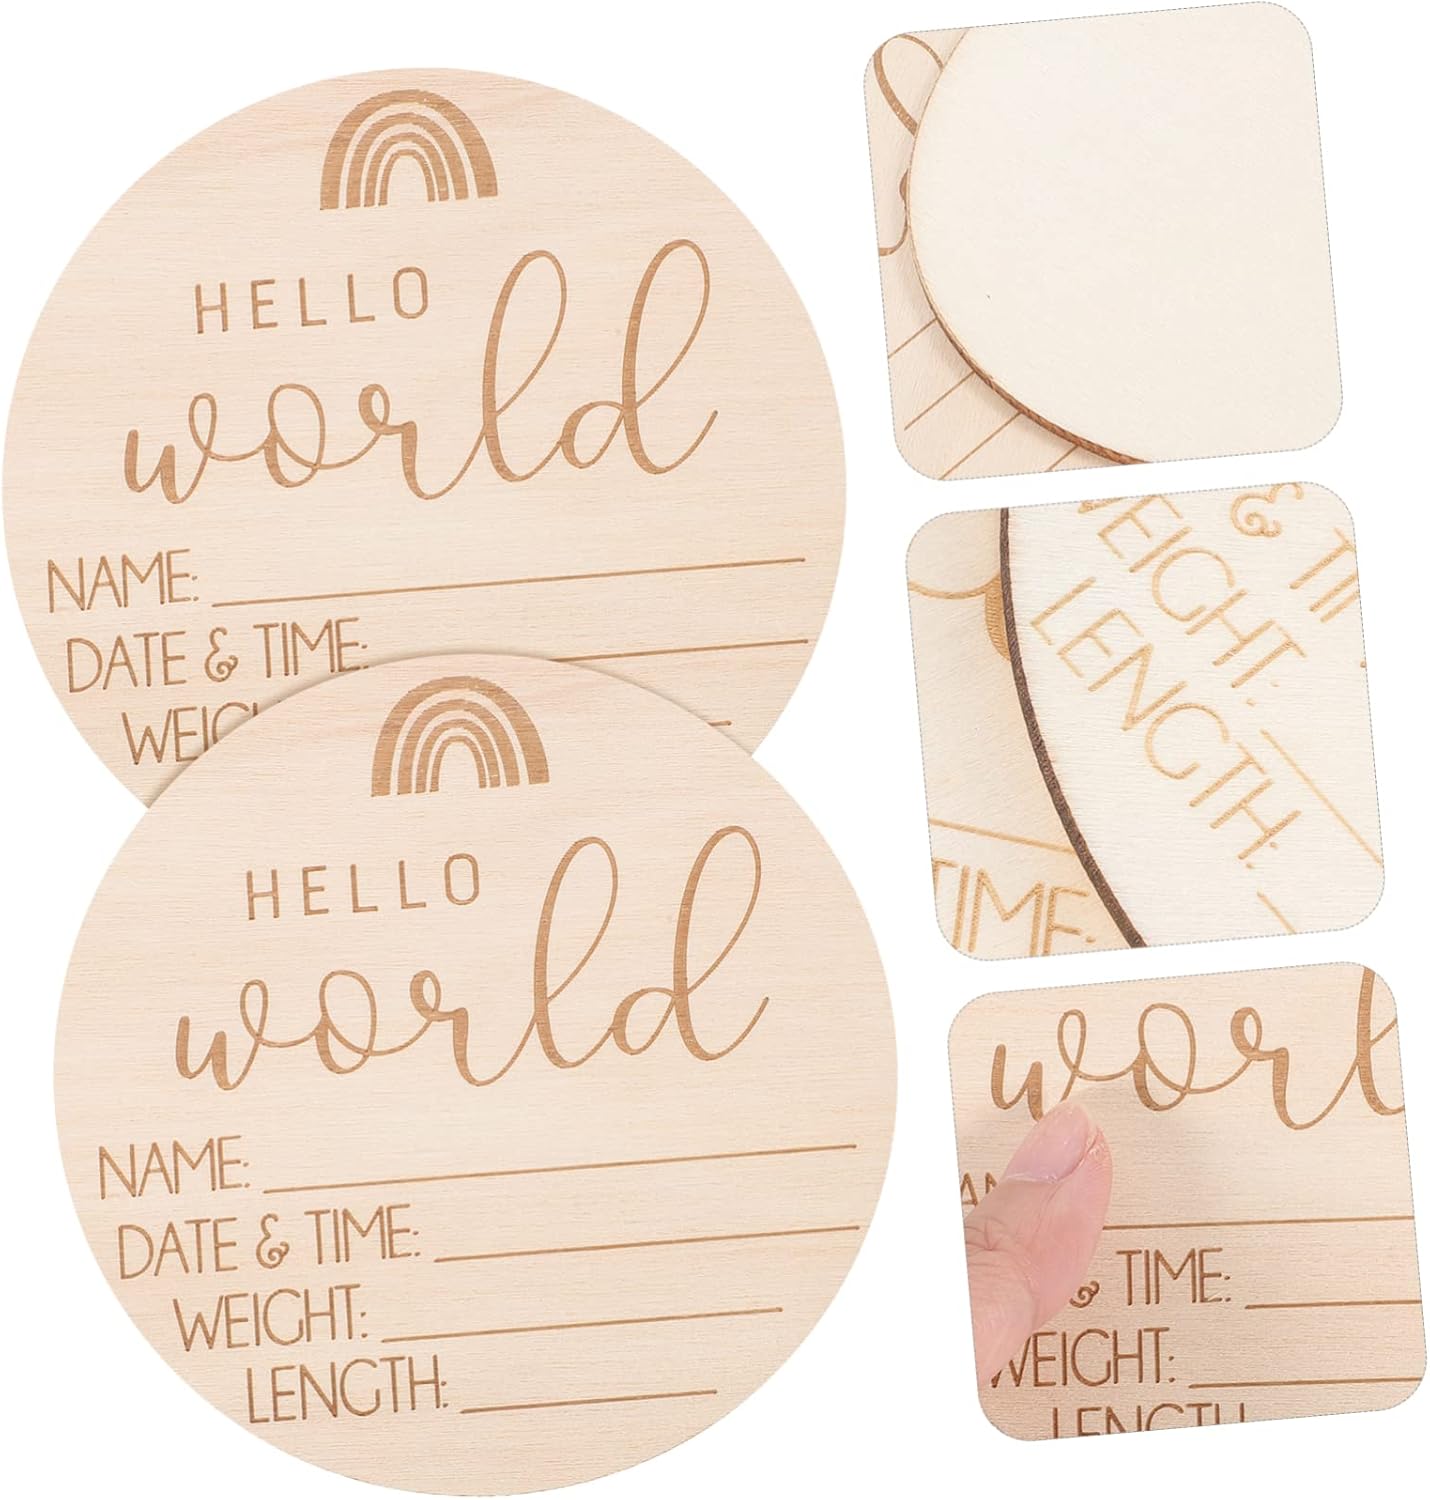 HELLO
world
NAME:
DATE & TIME:
WEIG
HELLO
world
NAME:
DATE & TIME:
WEIGHT:
LENGTH:
& TI
WEIGHT:
LENGTH:
TIME:
worl
AN
& TIME:
WEIGHT:
LENGTH